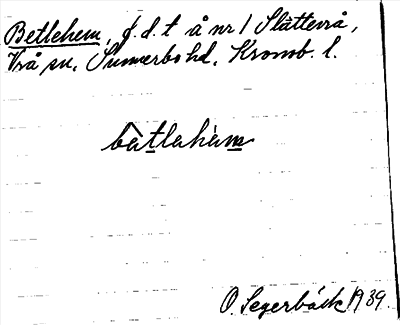 Betlehem, f.d.t å nr 1 Slätterå,
Vrå sn, Sunnerbo hd, Kronob. l.
bètlahàm
O. Segerbäck 1939.